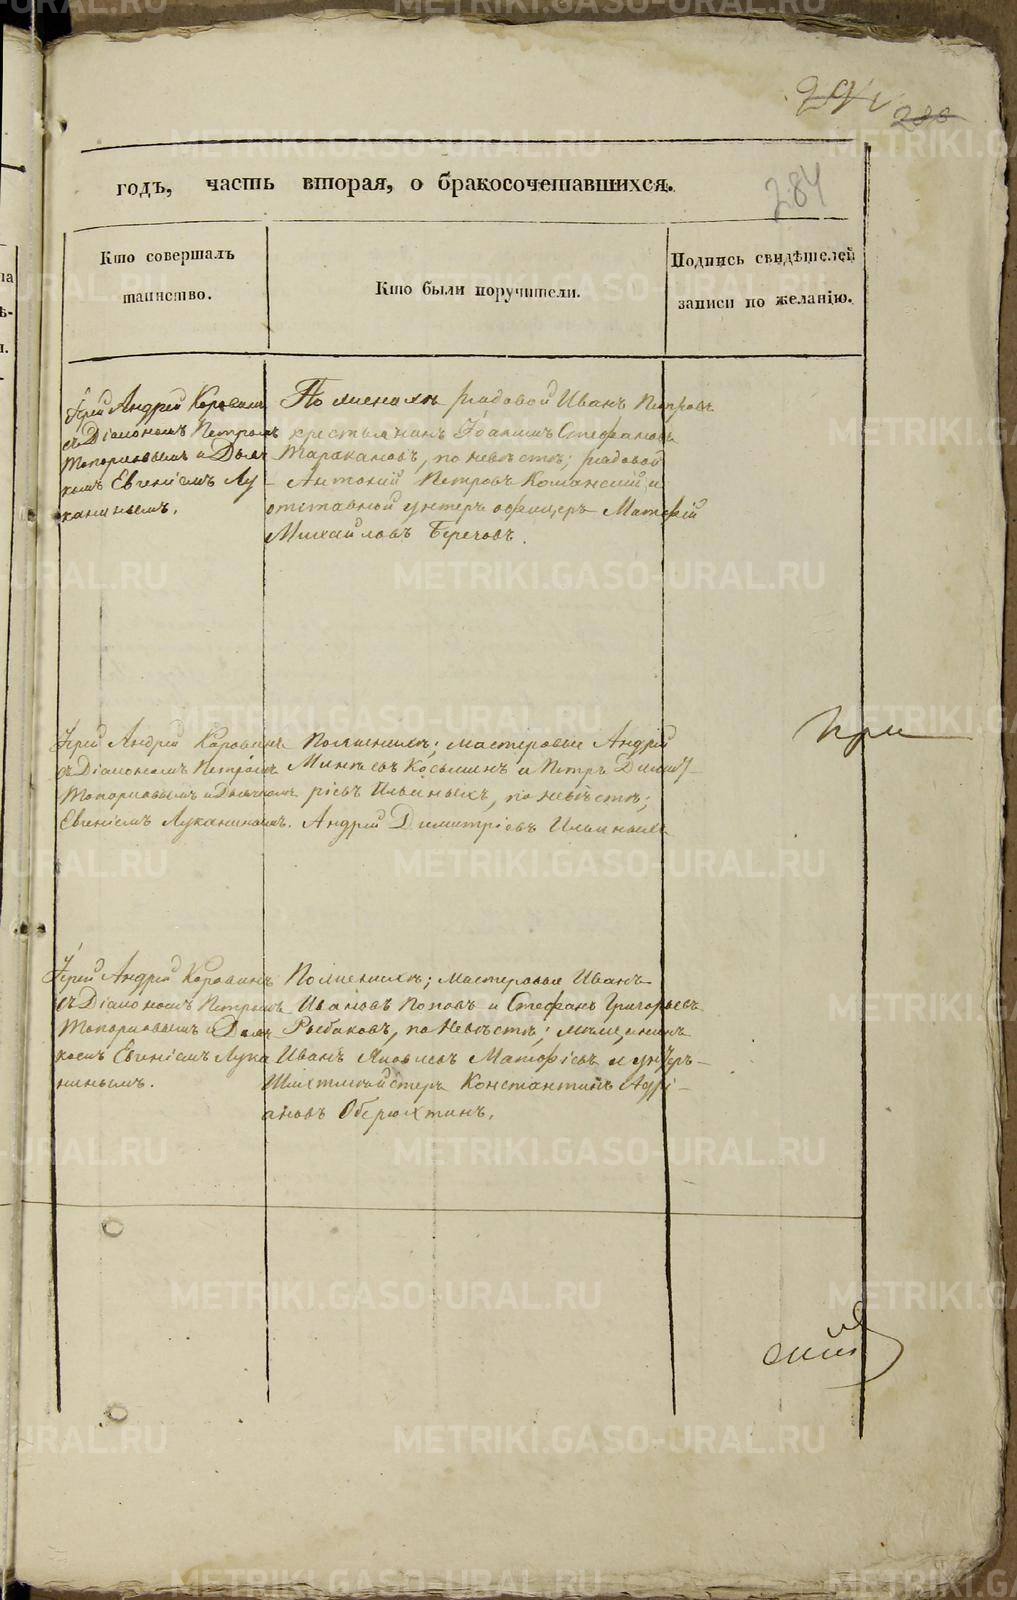 280
284
годъ, часть вторая, о бракосочетавшихся.
Кто совершалъ
таинство.
Кто были поручители.
Подпись свидѣтелей
записи по желанію.
Іерей Андрей Коровинъ
съ Діакономъ Петромъ
Топорковымъ и Дьяч
комъ Евгеніемъ Лу
канинымъ.
По женихѣ рядовой Иванъ Петровъ
крестьянинъ Іоаннъ Стефановъ
Таракановъ, по невѣстѣ; рядовой
Антоній Петровъ Команскій и
отставной унтеръ офицеръ Матѳій
Михайловъ Беречовъ.
Іерей Андрей Коровинъ
съ Діакономъ Петромъ
Топорковымъ и Дьячкомъ
Евгеніемъ Луканинымъ.
По женихѣ; мастеровые Андрей
Минѣевъ Косьминъ и Петръ Димит-
ріевъ Ильиныхъ, по невѣстѣ;
Андрей Димитріевъ Ильиныхъ
При
Іерей Андрей Коровинъ
съ Діакономъ Петромъ
Топорковымъ и Дьяч
комъ Евгеніемъ Лука
нинымъ.
По женихѣ; мастеровые Иванъ
Ивановъ Поповъ и Стефанъ Григорьевъ
Рыбаковъ, по невѣстѣ; мѣщанинъ
Иванъ Яковлевъ Матѳіевъ и унтеръ-
Шихтмейстеръ Константинъ Адрі-
ановъ Оберюхтинъ.
METRIKI.GASO-URAL.RU